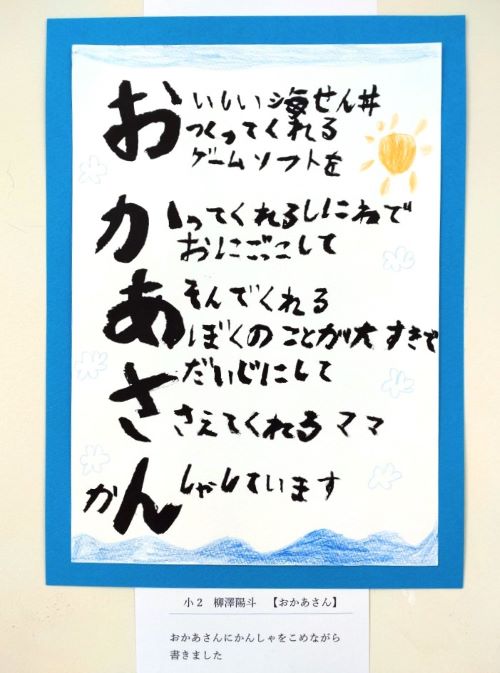 おいしい海せん丼
つくってくれる
ゲームソフトを
かってくれるしにわで
おにごっこして
あそんでくれる
ぼくのことが大すきで
だいじにして
ささえてくれるママ
かんしゃしています
小2 柳澤陽斗 【おかあさん】
おかあさんにかんしゃをこめながら
書きました